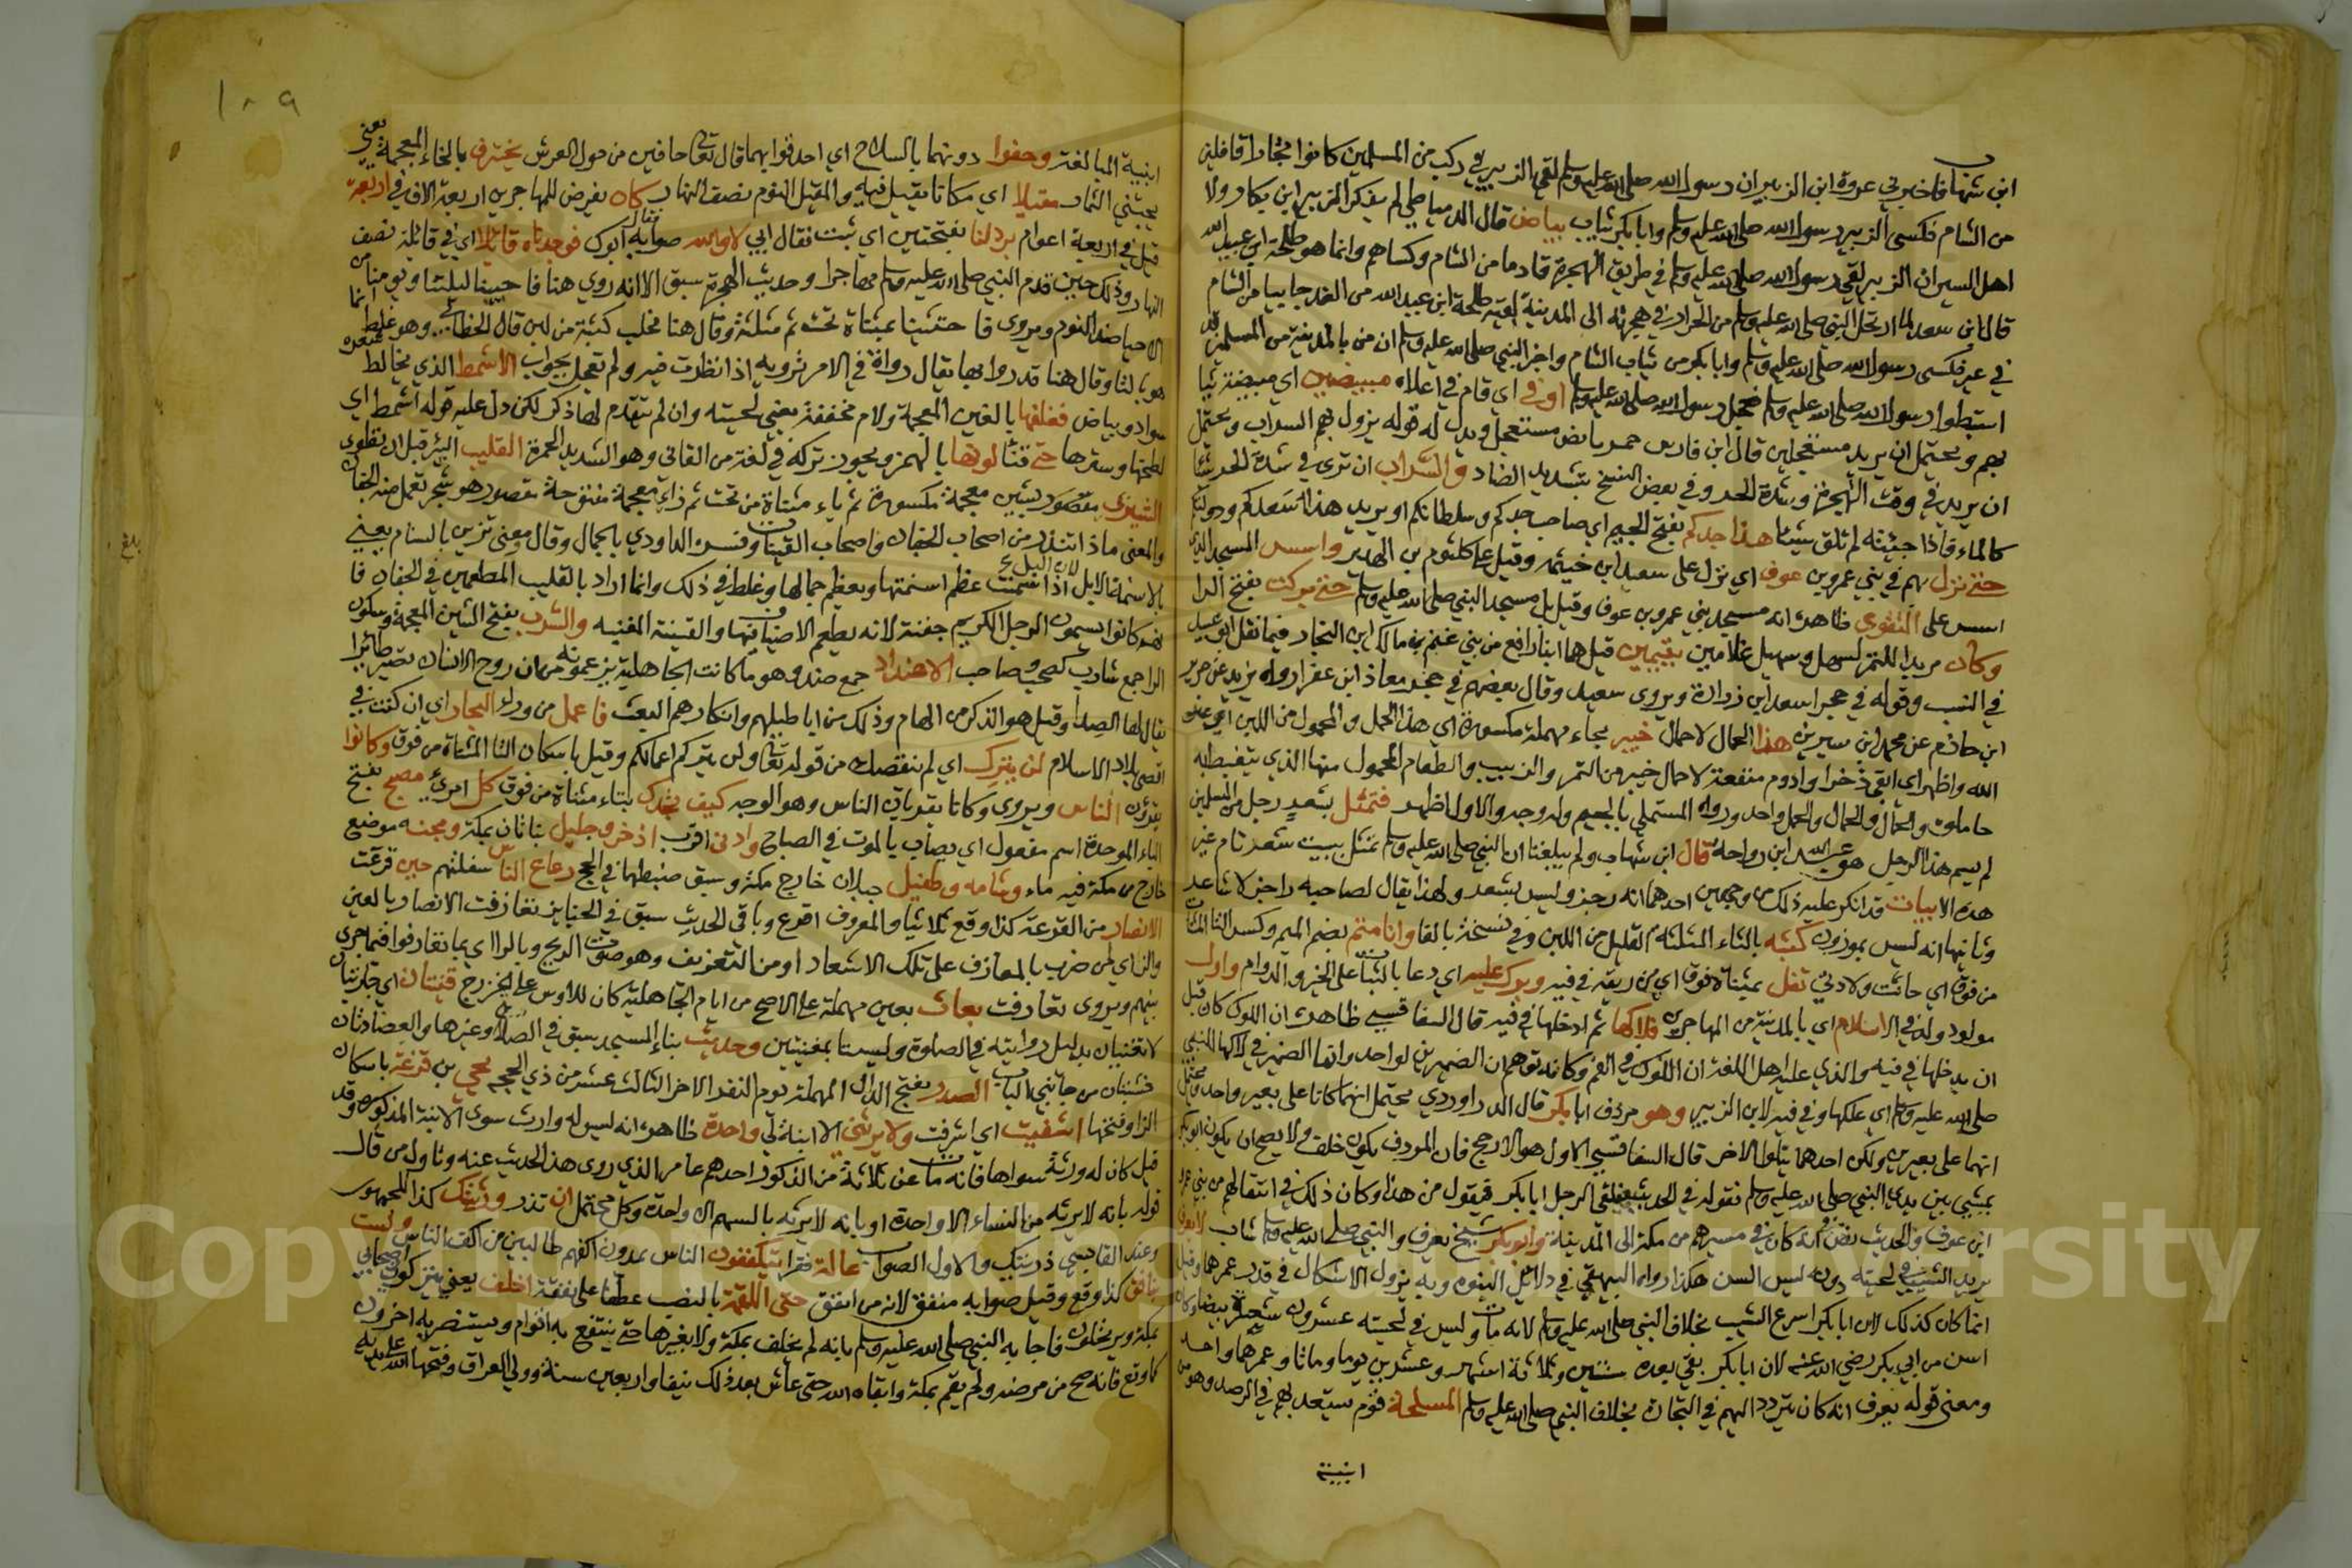 ابن شهاب فاخبرني عروة ابن الزبير ان رسول الله صلى الله عليه وسلم لقي الزبير في ركب من المسلمين كانوا تجارا قافلين
من الشام فكسى الزبير رسول الله صلى الله عليه وسلم وابا بكر ثياب بياض قال الدمياطي لم يذكر الزبير ابن بكار ولا
اهل السير ان الزبير لقي رسول الله صلى الله عليه وسلم في طريق الهجرة قادما من الشام وكساهم وانما هو طلحة ابن عبيد الله
قال ابن سعد لما ارتحل النبي صلى الله عليه وسلم من الخرار في هجرته الى المدينة لقيه طلحة ابن عبيد الله من الغد جاييا من الشام
في عير فكسى رسول الله صلى الله عليه وسلم وابا بكر من ثياب الشام واخبر النبي صلى الله عليه وسلم ان من بالمدينة من المسلمين قد
استبطوا رسول الله صلى الله عليه وسلم فعجل رسول الله صلى الله عليه وسلم اوفى اي قام في اعلاه مبيضين اي مبيضة ثيا
بهم ويحتمل ان يريد مستعجلين قال ابن فارس بايض مستعجل ويدل له قوله يزول بهم السراب ويحتمل
ان يريد في وقت الهجرة وشدة الحر وفي بعض النسخ بتشديد الضاد والسراب ان ترى في شدة الحر شيا
كالماء فاذا جيته لم تلق شيئا هذا جدكم بفتح الجيم اي صاحب جدكم وسلطانكم او يريد هذا سعدكم ودولتكم
حتى نزل بهم في بني عمرو بن عوف اي نزل على سعد ابن خيثمه وقيل على كلثوم بن الهدم واسس المسجد الذي
اسس على التقوى ظاهره انه مسجد بني عمرو بن عوف وقيل بل مسجد النبي صلى الله عليه وسلم حتى بركت بفتح الرا
وكان مربدا للتمر لسهل وسهيل غلامين يتيمين قيل هما ابنا رافع من بني غنم بن مالك ابن النجار فيما نقل ابو عبيد
في النسب وقوله في حجر اسعد ابن زرارة ويروى سعد وقال بعضهم في حجر معاذ ابن عفرا رواه يزيد عن جرير
ابن حازم عن محمد ابن سيرين هذا الحمال لاحمال خيبر بحاء مهملة مكسورة اي هذا الحمل والمحمول من اللبن
الله واطهر اي ابقى ذخرا وادوم منفعة لاحمال خيبر من التمر والزبيب والطعام المحمول منها الذي يتغبط به
حاملوه والحمال والحمل واحد ورواه المستملي بالجيم وله وجه والاول اظهر فتمثل بشعر رجل من المسلمين
لم يسم هذا الرجل هو عبد الله ابن رواحة قال ابن شهاب ولم يبلغنا ان النبي صلى الله عليه وسلم تمثل ببيت شعر تام غير
هذه الابيات قد انكر عليه ذلك من وجهين احدهما انه رجز وليس بشعر ولهذا يقال لصاحبه راجز لا شاعر
وثانيهما انه ليس بموزون كثبه بالثاء المثلثة القليل من اللبن وفي نسخة بالفا وانا متم بضم الميم وكسر التا المثناة
من فوق اي حانت ولادتي تفل بمثناة فوق اي من ريقه في فيه وبرك عليه اي دعا بالثبات على الخير والدوام واول
مولود ولد في الاسلام اي بالمدينة من المهاجرين فلاكها ثم ادخلها في فيه قال السفاقسي ظاهره ان اللوك كان قبل
ان يدخلها في فيه والذي عليه اهل اللغة ان اللوك في الفم وكانه توهم ان الضميرين لواحد وانما الضمير في لاكها للنبي
صلى الله عليه وسلم اي علكها وفي فيه لابن الزبير وهو مردف ابا بكر قال الدراوردي يحتمل انهما كانا على بعير واحد ويحتمل
انهما على بعيرين ولكن احدهما يتلو الاخر قال السفاقسي الاول هو الارجح فان المردف يكون خلف ولا يصح ان يكون ابو بكر
يمشي بين يدي النبي صلى الله عليه وسلم لقوله في الحديث فيلقى الرجل ابا بكر فيقول من هذا وكان ذلك في انتقالهم من بني عمرو
ابن عوف والحديث نص انه كان في مسيرهم من مكة الى المدينة وابو بكر شيخ يعرف والنبي صلى الله عليه وسلم شاب لا يعرف
يريد الشيب في لحيته دون ليس السن هكذا رواه البيهقي في دلائل النبوه وبه يزول الاشكال في قدر عمرهما وقيل
انما كان كذلك لان ابا بكر اسرع الشيب بخلاف النبي صلى الله عليه وسلم لانه مات وليس في لحيته عشرون شعرة بيضا وكان
اسن من ابي بكر رضي الله عنه لان ابا بكر بقي بعده سنتين وثلاثة اشهر وعشرين يوما وماتا وعمرهما واحد
ومعنى قوله يعرف انه كان يتردد اليهم في التجارة بخلاف النبي صلى الله عليه وسلم المسلحة قوم يستعد بهم في الرصد وهو من
ابنية
١٠٩
ابنية المبالغة وحفوا دونهما بالسلاح اي احدقوا بهما قال تعالى حافين من حول العرش يخترف بالخاء المعجمة يعني
يجتني الثمار مقيلا اي مكانا نقيل فيه والمقيل النوم نصف النهار كان يفرض للمهاجرين اربعة الاف في اربعة
قيل في اربعة اعوام برد لنا بفتحتين اي ثبت فقال ابي لا والله صوابه ابوك فوجدناه قائلا اي في قائلة نصف
النهار وذلك حين قدم النبي صلى الله عليه وسلم مهاجرا وحديث الهجرة سبق الا انه روي هنا فاحيينا ليلتنا ويومنا من
الاحيا ضد النوم ويروى فاحتثثنا بمثناة تحت ثم مثلثة وقال هنا فحلب كثبة من لبن قال الخطابي وهو غلط انما
هو بالنا وقال هنا قد رواتها يقال رواة في الامر ترويه اذا نظرت فيه ولم تعجل بجواب الاشمط الذي يخالط شعره
سواد وبياض فغلفها بالغين المعجمة ولام مخففة يعني لحيته وان لم يتقدم لها ذكر لكن دل عليه قوله اشمط اي
لطخها وسترها حتى قنا لونها بالهمز ويجوز تركه في لغة من القاني وهو الشديد الحمرة القليب البئر قبل ان تطوى
الشيزى مقصور بشين معجمة مكسورة ثم ياء مثناة من تحت ثم زاي معجمة مفتوحة مقصور هو شجر تعمل منه الجفان
والمعنى ماذا ببدر من اصحاب الجفان واصحاب القينات وفسره الداودي بالجمال وقال ومعنى تزين بالسنام يعني
الاسنمة لان الابل اذا سمنت عظم اسنمتها ويعظم جمالها وغلط في ذلك وانما اراد بالقليب المطعمين في الجفان فا
نهم كانوا يسمون الرجل الكريم جفنة لانه يطعم الاضياف فيها والقينة المغنيه والشرب بفتح الشين المعجمة وسكون
الرا جمع شارب كصحب وصاحب الاصداء جمع صدى وهو ما كانت الجاهلية يزعمونه من ان روح الانسان تصير طائرا
يقال لها الصدا وقيل هو الذكر من الهام وذلك من اباطيلهم وانكارهم البعث فاعمل من وراء البحار اي ان كنت في
اقصى بلاد الاسلام لن يترك اي لم ينقصك من قوله تعالى ولن يتركم اعمالكم وقيل باسكان التا المثناة من فوق وكانوا
يقرئون الناس ويروى وكانا يقريان الناس وهو الوجه كيف تجدك بتاء مثناة من فوق كل امرئ مصبح بفتح
الباء الموحدة اسم مفعول اي يصاب بالموت في الصباح وادنى اقرب اذخر وجليل نباتان بمكة ومجنه موضع
خارج من مكة فيه ماء وشامه وطفيل جبلان خارج مكة وسبق ضبطهما في الحج رعاع الناس سفلتهم حين قرعت
الانصار من القرعة كذا وقع ثلاثيا والمعروف اقرع وباقي الحديث سبق في الجنايز تغازفت الانصار بالعين
والزاي اي من ضرب بالمعازف على تلك الاشعار او من التعزيف وهو صوت الريح وبالرا اي بما تعارفوا فيما جرى
بينهم ويروى تعارفت بعاث بعين مهملة على الاصح من ايام الجاهلية كان للاوس على الخزرج قينتان اي جاريتان
لا تغنيان بدليل روايته في الصلوة وليستا بمغنيتين وحديث بناء المسجد سبق في الصلاة وغيرها والعضادتان
خشبتان من جانبي الباب الصدر بفتح الدال المهملة يوم النفر الاخر الثالث عشر من ذي الحجه يحيى بن قزعة باسكان
الزا وفتحها اشفيت اي اشرفت ولا يرثني الا ابنة لي واحدة ظاهره انه ليس له وارث سوى الابنة المذكورة وقد
قيل كان له ورثة سواها فانه مات عن ثلاثة من الذكور احدهم عامر الذي روى هذا الحديث عنه وتاول من قال
قوله بانه لا يرثه من النساء الا واحدة او بانه لا يرثه بالسهم الا واحدة وكل محتمل ان تذر ورثتك كذا للجمهور
وعند القابسي ذريتك والاول الصواب عالة فقرا يتكففون الناس يمدون اكفهم طالبين من اكف الناس ولست
نافق كذا وقع وقيل صوابه منفق لانه من انفق حتى اللقمة بالنصب عطفا على نفقة اخلف يعني يتركون اصحابي
بمكة ويرتحلون فاجابه النبي صلى الله عليه وسلم بانه لم يخلف بمكة ولا بغيرها حتى ينتفع به اقوام ويستضر به اخرون
كما وقع فانه صح من مرضه ولم يقم بمكة وابقاه الله حتى عاش بعد ذلك نيفا واربعين سنة وولي العراق وفتحها الله على يديه
بلغ
Copyright © King Saud University